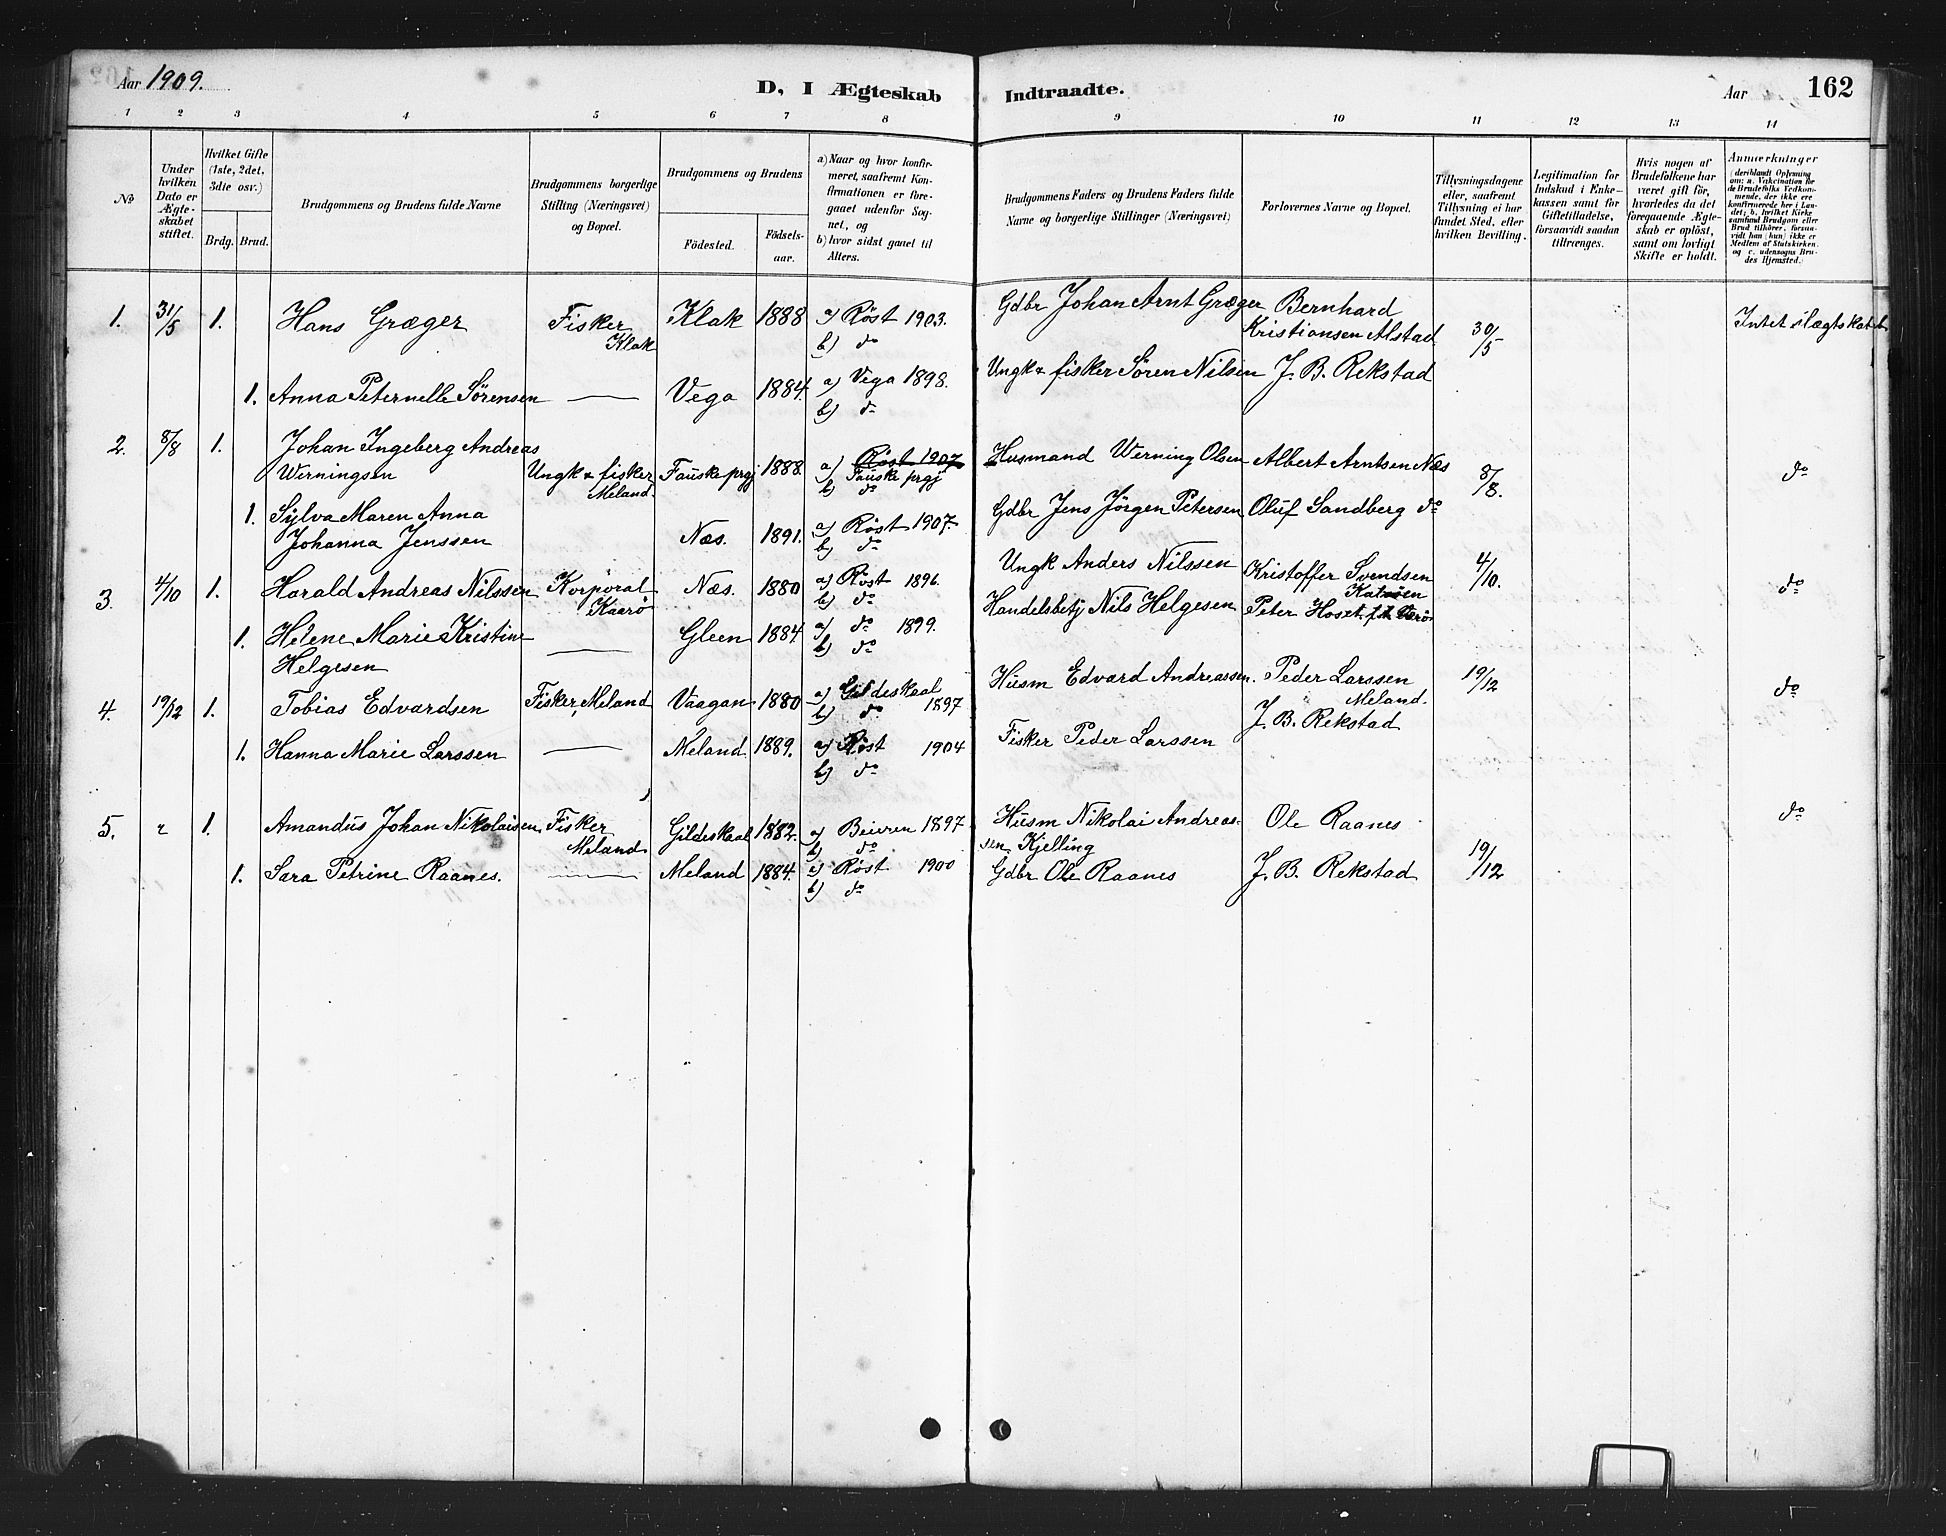 Aar 1909.
D, I Ægteskab Indtraadte.
Aar
162
1 2 3 4 5 6 7 8 9 10 11 12 13 14
No
Under hvilken Dato er Ægteskabet stiftet.
Hvilket Gifte (1ste, 2det, 3die osv.)
Brdg. Brud.
Brudgommens og Brudens fulde Navne
Brudgommens borgerlige Stilling (Næringsvei) og Bopæl.
Brudgommens og Brudens
Födested.
Födselsaar.
a) Naar og hvor konfirmeret, saafremt Konfirmationen er foregaaet udenfor Sognet, og
b) hvor sidst ganet til Alters.
Brudgommens Faders og Brudens Faders fulde Navne og borgerlige Stillinger (Næringsvei)
Forlovernes Navne og Bopæl.
Tillysningsdagene eller, saafremt Tillysning ei har fundet Sted, efter hvilken Bevilling.
Legitimation for Indskud i Enkekassen samt for Giftetilladelse, forsaavidt saadan tiltrænges.
Hvis nogen af Brudefolkene har været gift för, hvorledes da det foregaaende Ægteskab er oplöst, samt om lovligt Skifte er holdt.
Anmærkninger (deriblandt Oplysning om: a. Vakcination for de Brudefolks Vedkommende, der ikke ere konfirmerede her i Landet; b. hvilket Kirkesamfund Brudgom eller Brud tilhörer, forsaavidt han (hun) ikke er Medlem af Statskirken, og c. udensogns Brudes Hjemsted.)
1. 31/5 1. Hans Græger Fisker Klak 1888 a) Røst 1903. Gdbr Johan Arnt Græger Bernhard
Klak b) do Kristiansen Alstad 30/5 Intet slægtskab
1. Anna Peternelle Sørensen — Vega 1884. a) Vega 1898. Ungk & fisker Søren Nilsen J. B. Rekstad
b) do
2. 8/8 1. Johan Ingeberg Andreas
Werningsen Ungk & fisker Fauske prgj 1888. a) Røst 1907 Husmand Werning Olsen Albert Arntsen Næs 8/8. do
Meland. Fauske prgj
b) do
1. Sylva Maren Anna
Johanna Jenssen Næs. 1891. a) Røst 1907. Gdbr Jens Jörgen Petersen Oluf Sandberg do
b) do
3. 4/10 1. Harald Andreas Nilssen Korporal Næs. 1880 a) Røst 1896. Ungk Anders Nilssen Kristoffer Svendsen 4/10. do
Kaarö b) do
1. Helene Marie Kristine — Gleen 1884 a) do 1899. Handelsbetj Nils Helgesen Peter Hoset
Helgesen b) do
4. 19/12 1. Tobias Edvardsen Fisker, Meland Vaagan 1880 a) Gildeskaal Husm Edvard Andreassen. Peder Larssen 19/12 do
b) do 1897 Meland.
1. Hanna Marie Larssen — Meland 1889. a) Røst 1904 Fisker Peder Larssen J. B. Rekstad
b) do
5. " 1. Amandus Johan Nikolaisen Fisker Gildeskaal 1882. a) Beieren 1897 Husm Nikolai Andreas- Ole Raanes do
Meland b) do sen Kjelling 19/12
1. Sara Petrine Raanes. — Meland 1884. a) Røst 1900 Gdbr Ole Raanes J. B. Rekstad
b) do